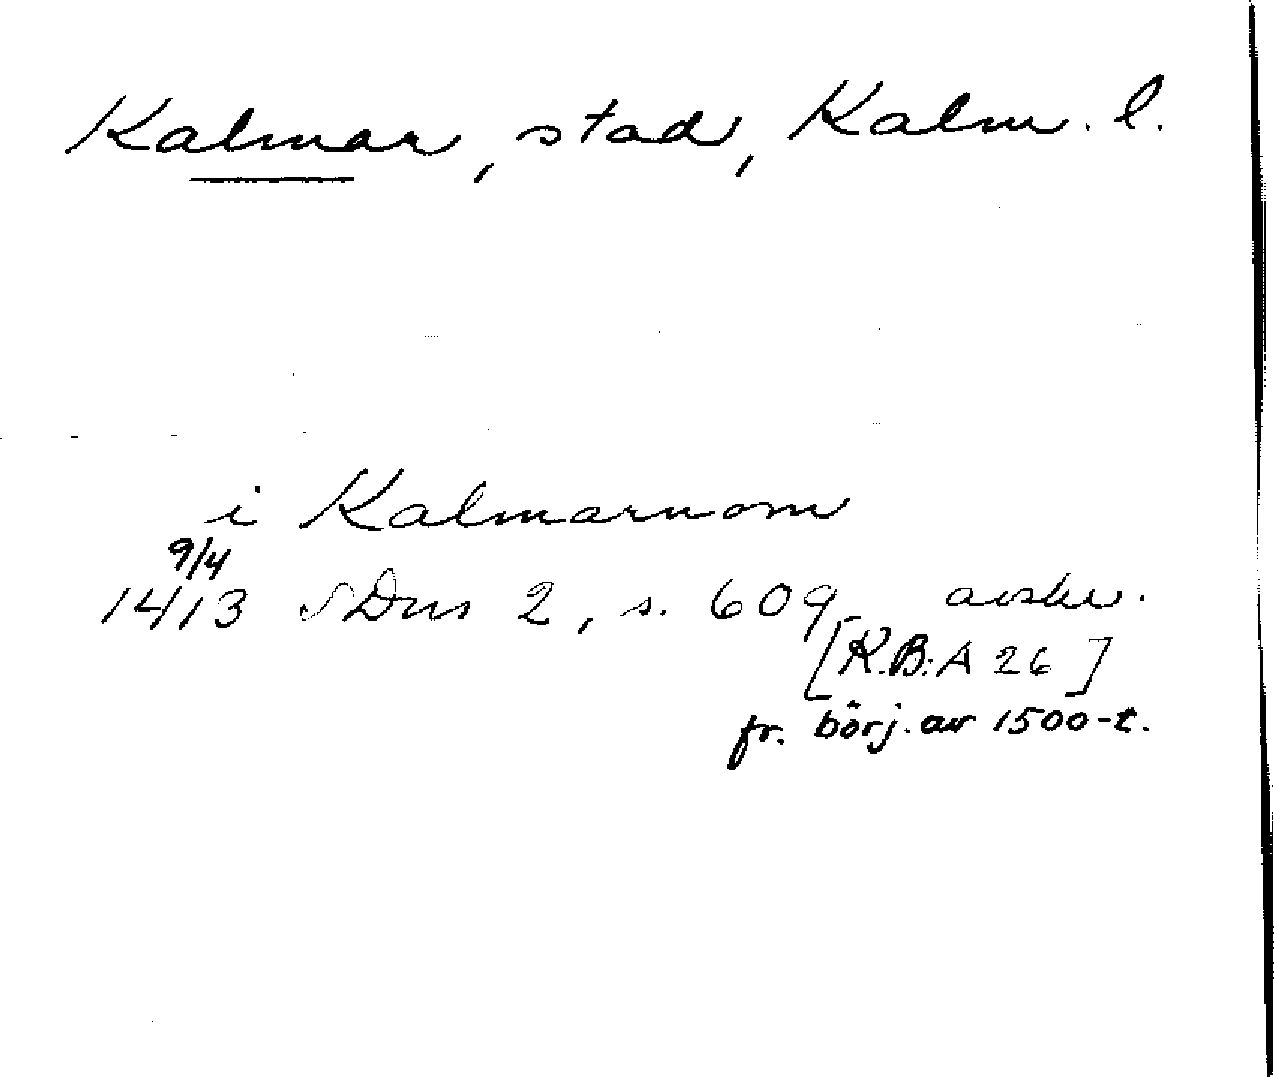 Kalmar, stad, Kalm. l.
i Kalmarnom
9/4
1413 SDns 2, s. 609 avskr.
[K.B:A 26]
fr. börj. av 1500-t.